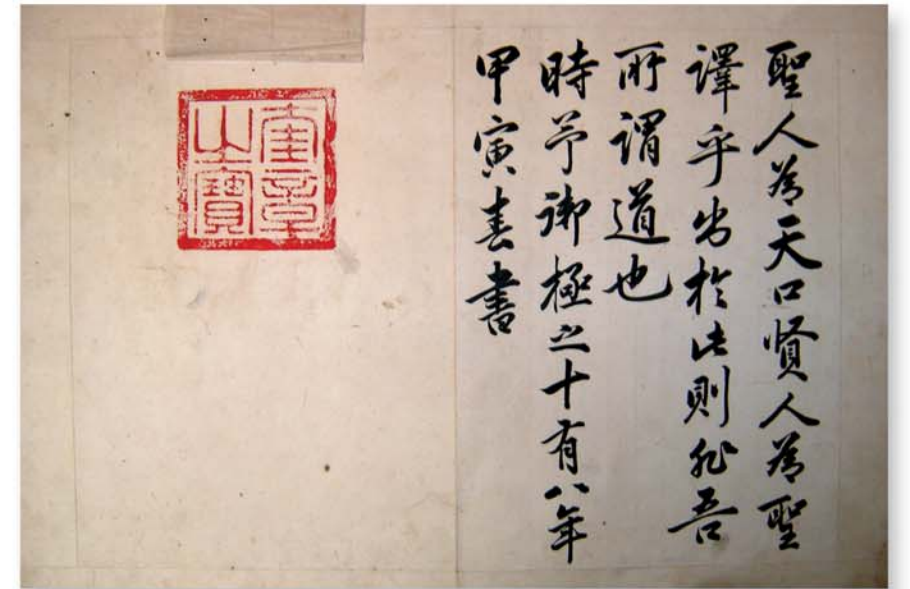 聖人為天口賢人為聖
譯乎於此則非吾
所謂道也
時予御極之十有八年
甲寅春書
奎章
之寶